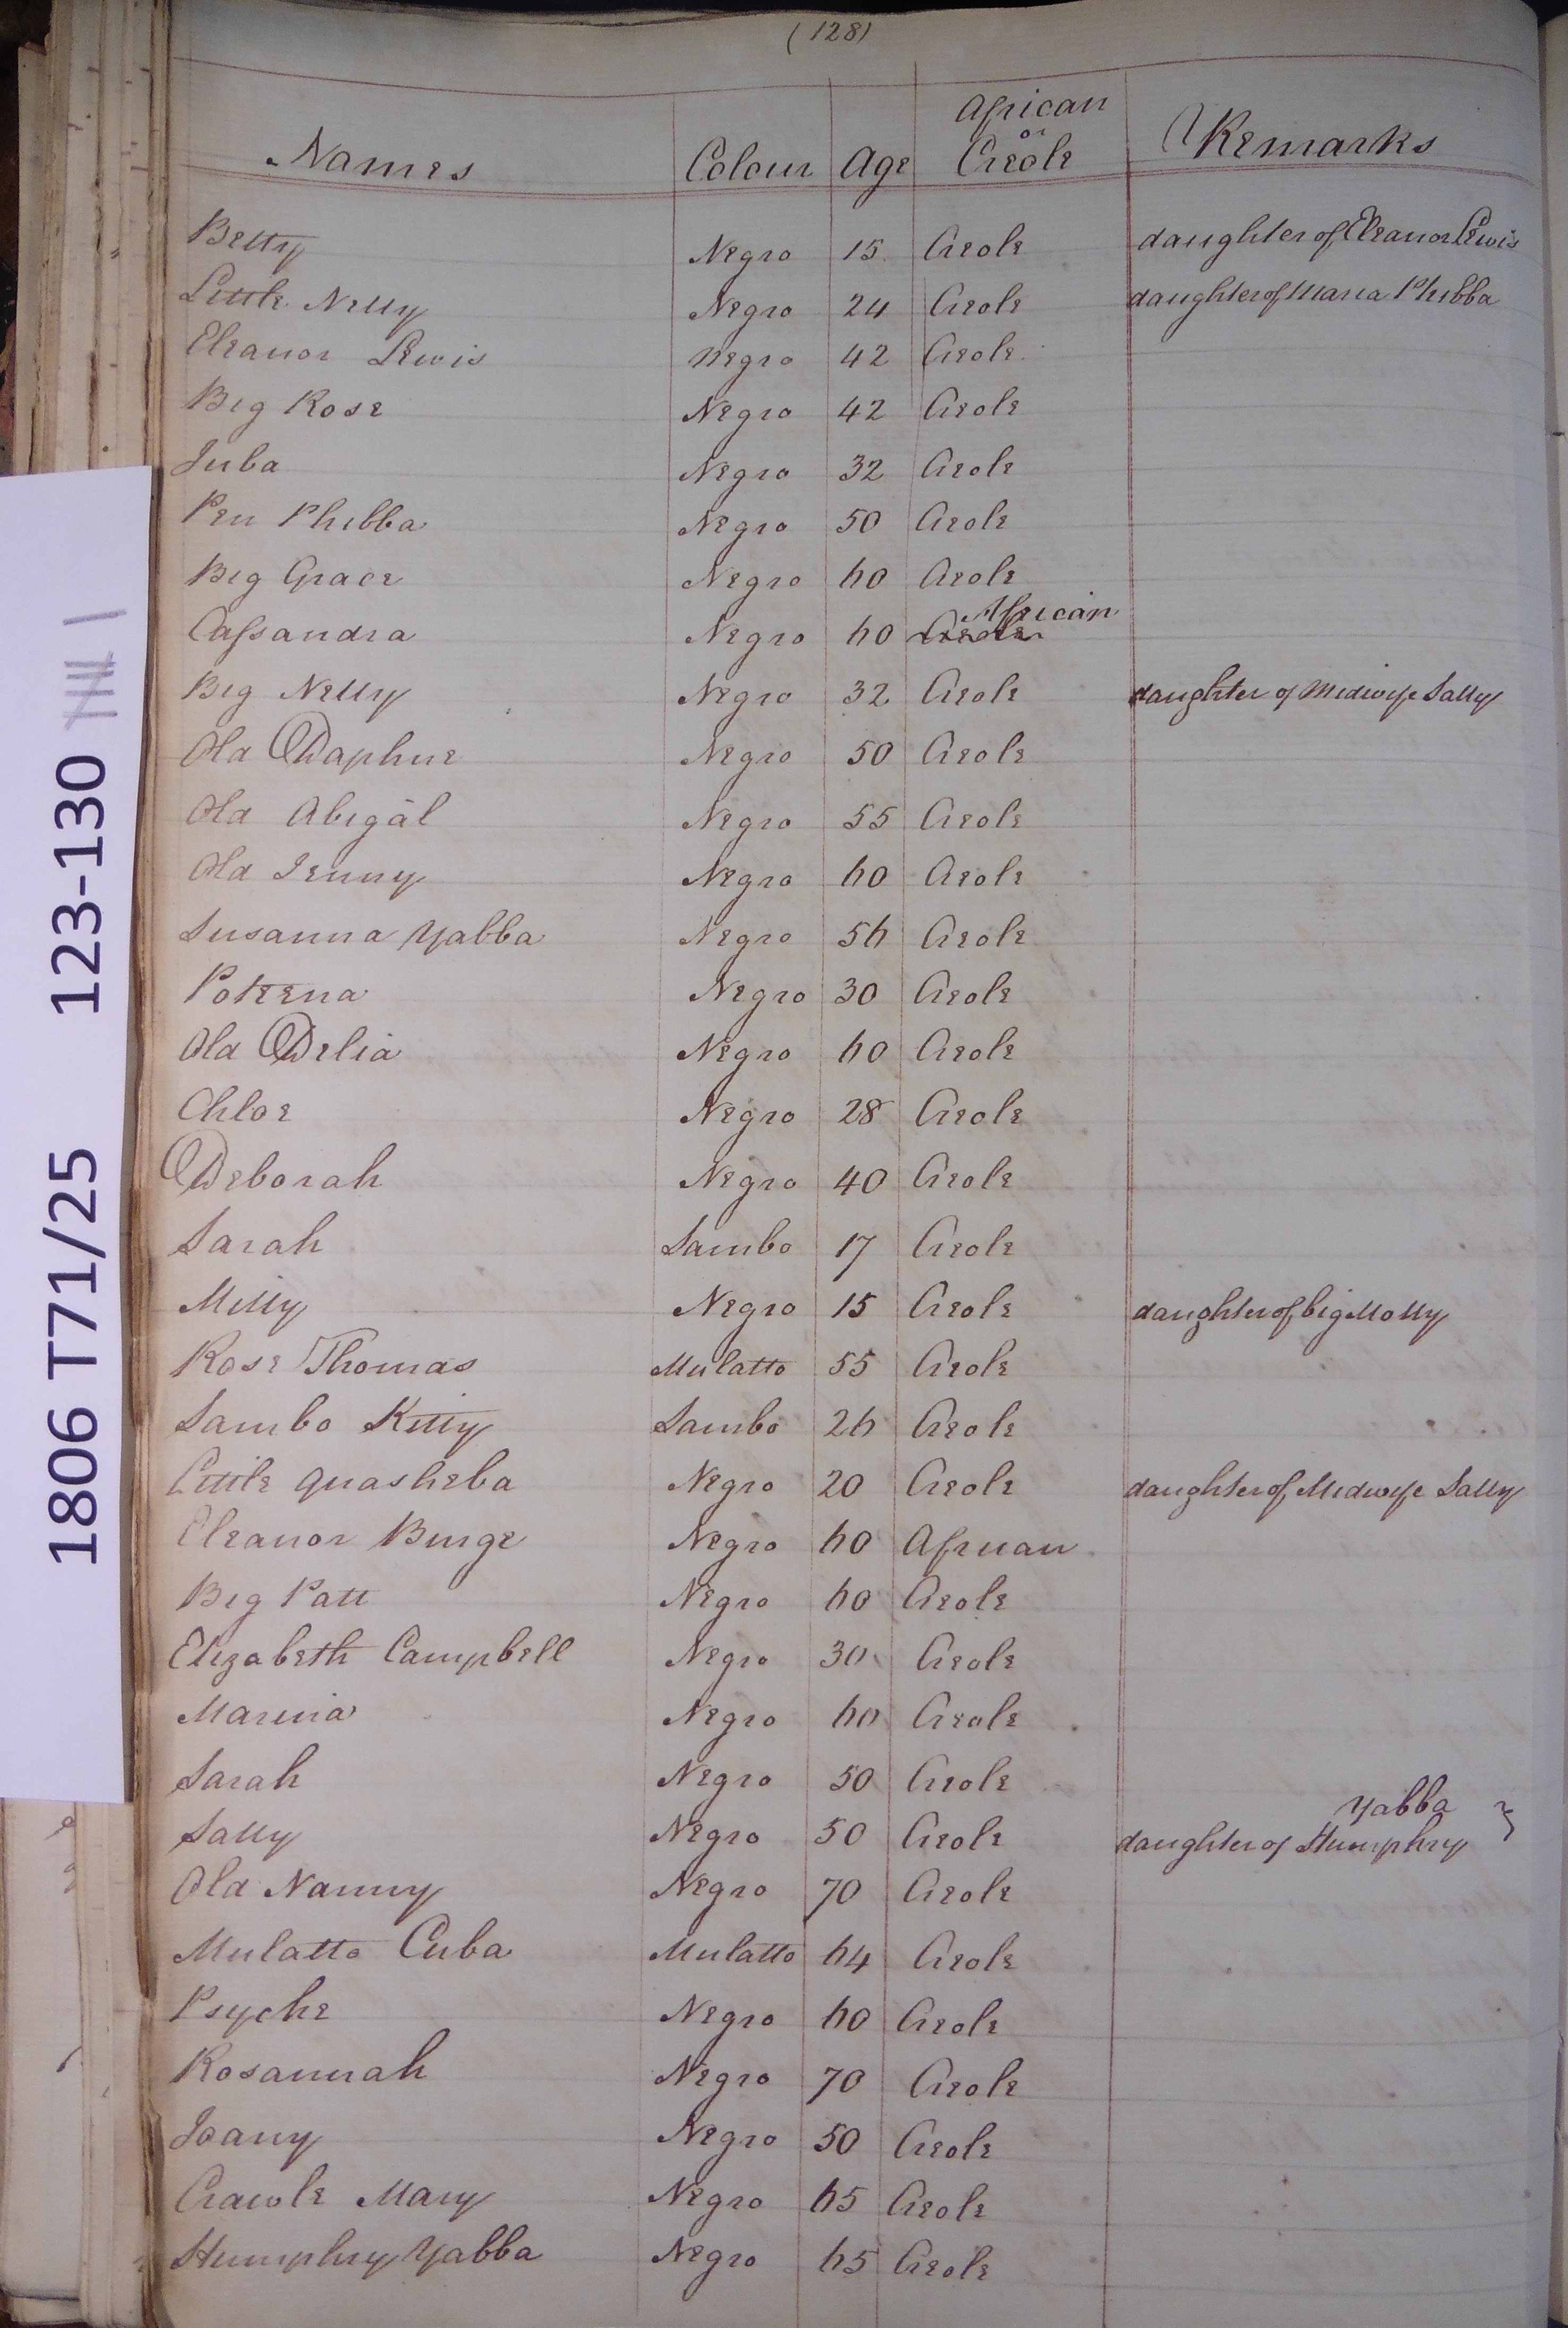 (128)
Names Colour Age African or Creole Remarks
Betty Negro 15 Creole daughter of Eleanor Lewis
Little Nelly Negro 24 Creole daughter of Maria Phibba
Eleanor Lewis Negro 42 Creole
Big Rose Negro 42 Creole
Juba Negro 32 Creole
Pen Phibba Negro 50 Creole
Big Grace Negro 60 Creole
Cassandra Negro 60 Creole African
Big Nelly Negro 32 Creole daughter of Midwife Sally
Old Daphne Negro 50 Creole
Old Abigal Negro 55 Creole
Old Jenny Negro 60 Creole
Susanna Yabba Negro 56 Creole
Poteena Negro 30 Creole
Old Delia Negro 60 Creole
Chloe Negro 28 Creole
Deborah Negro 40 Creole
Sarah Sambo 17 Creole
Milly Negro 15 Creole daughter of big Molly
Rose Thomas Mulatto 55 Creole
Sambo Kitty Sambo 26 Creole
Little Quasheba Negro 20 Creole daughter of Midwife Sally
Eleanor Burge Negro 60 African
Big Patt Negro 60 Creole
Elizabeth Campbell Negro 30 Creole
Marina Negro 60 Creole
Sarah Negro 50 Creole
Sally Negro 50 Creole daughter of Humphry Yabba }
Old Nanny Negro 70 Creole
Mulatto Cuba Mulatto 64 Creole
Psyche Negro 60 Creole
Rosannah Negro 70 Creole
Joany Negro 50 Creole
Crawle Mary Negro 65 Creole
Humphry Yabba Negro 65 Creole
1806 T71/25 123-130